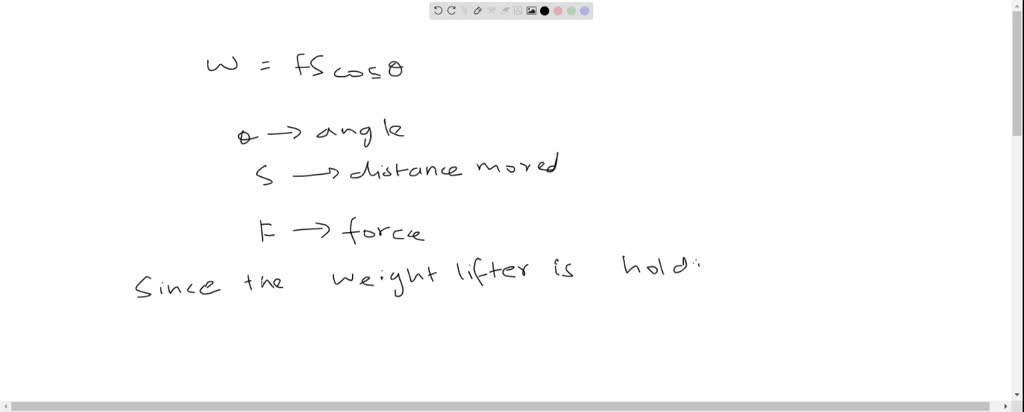 W = FS cosθ
θ → angle
S → distance moved
F → force
Since the weight lifter is holdi